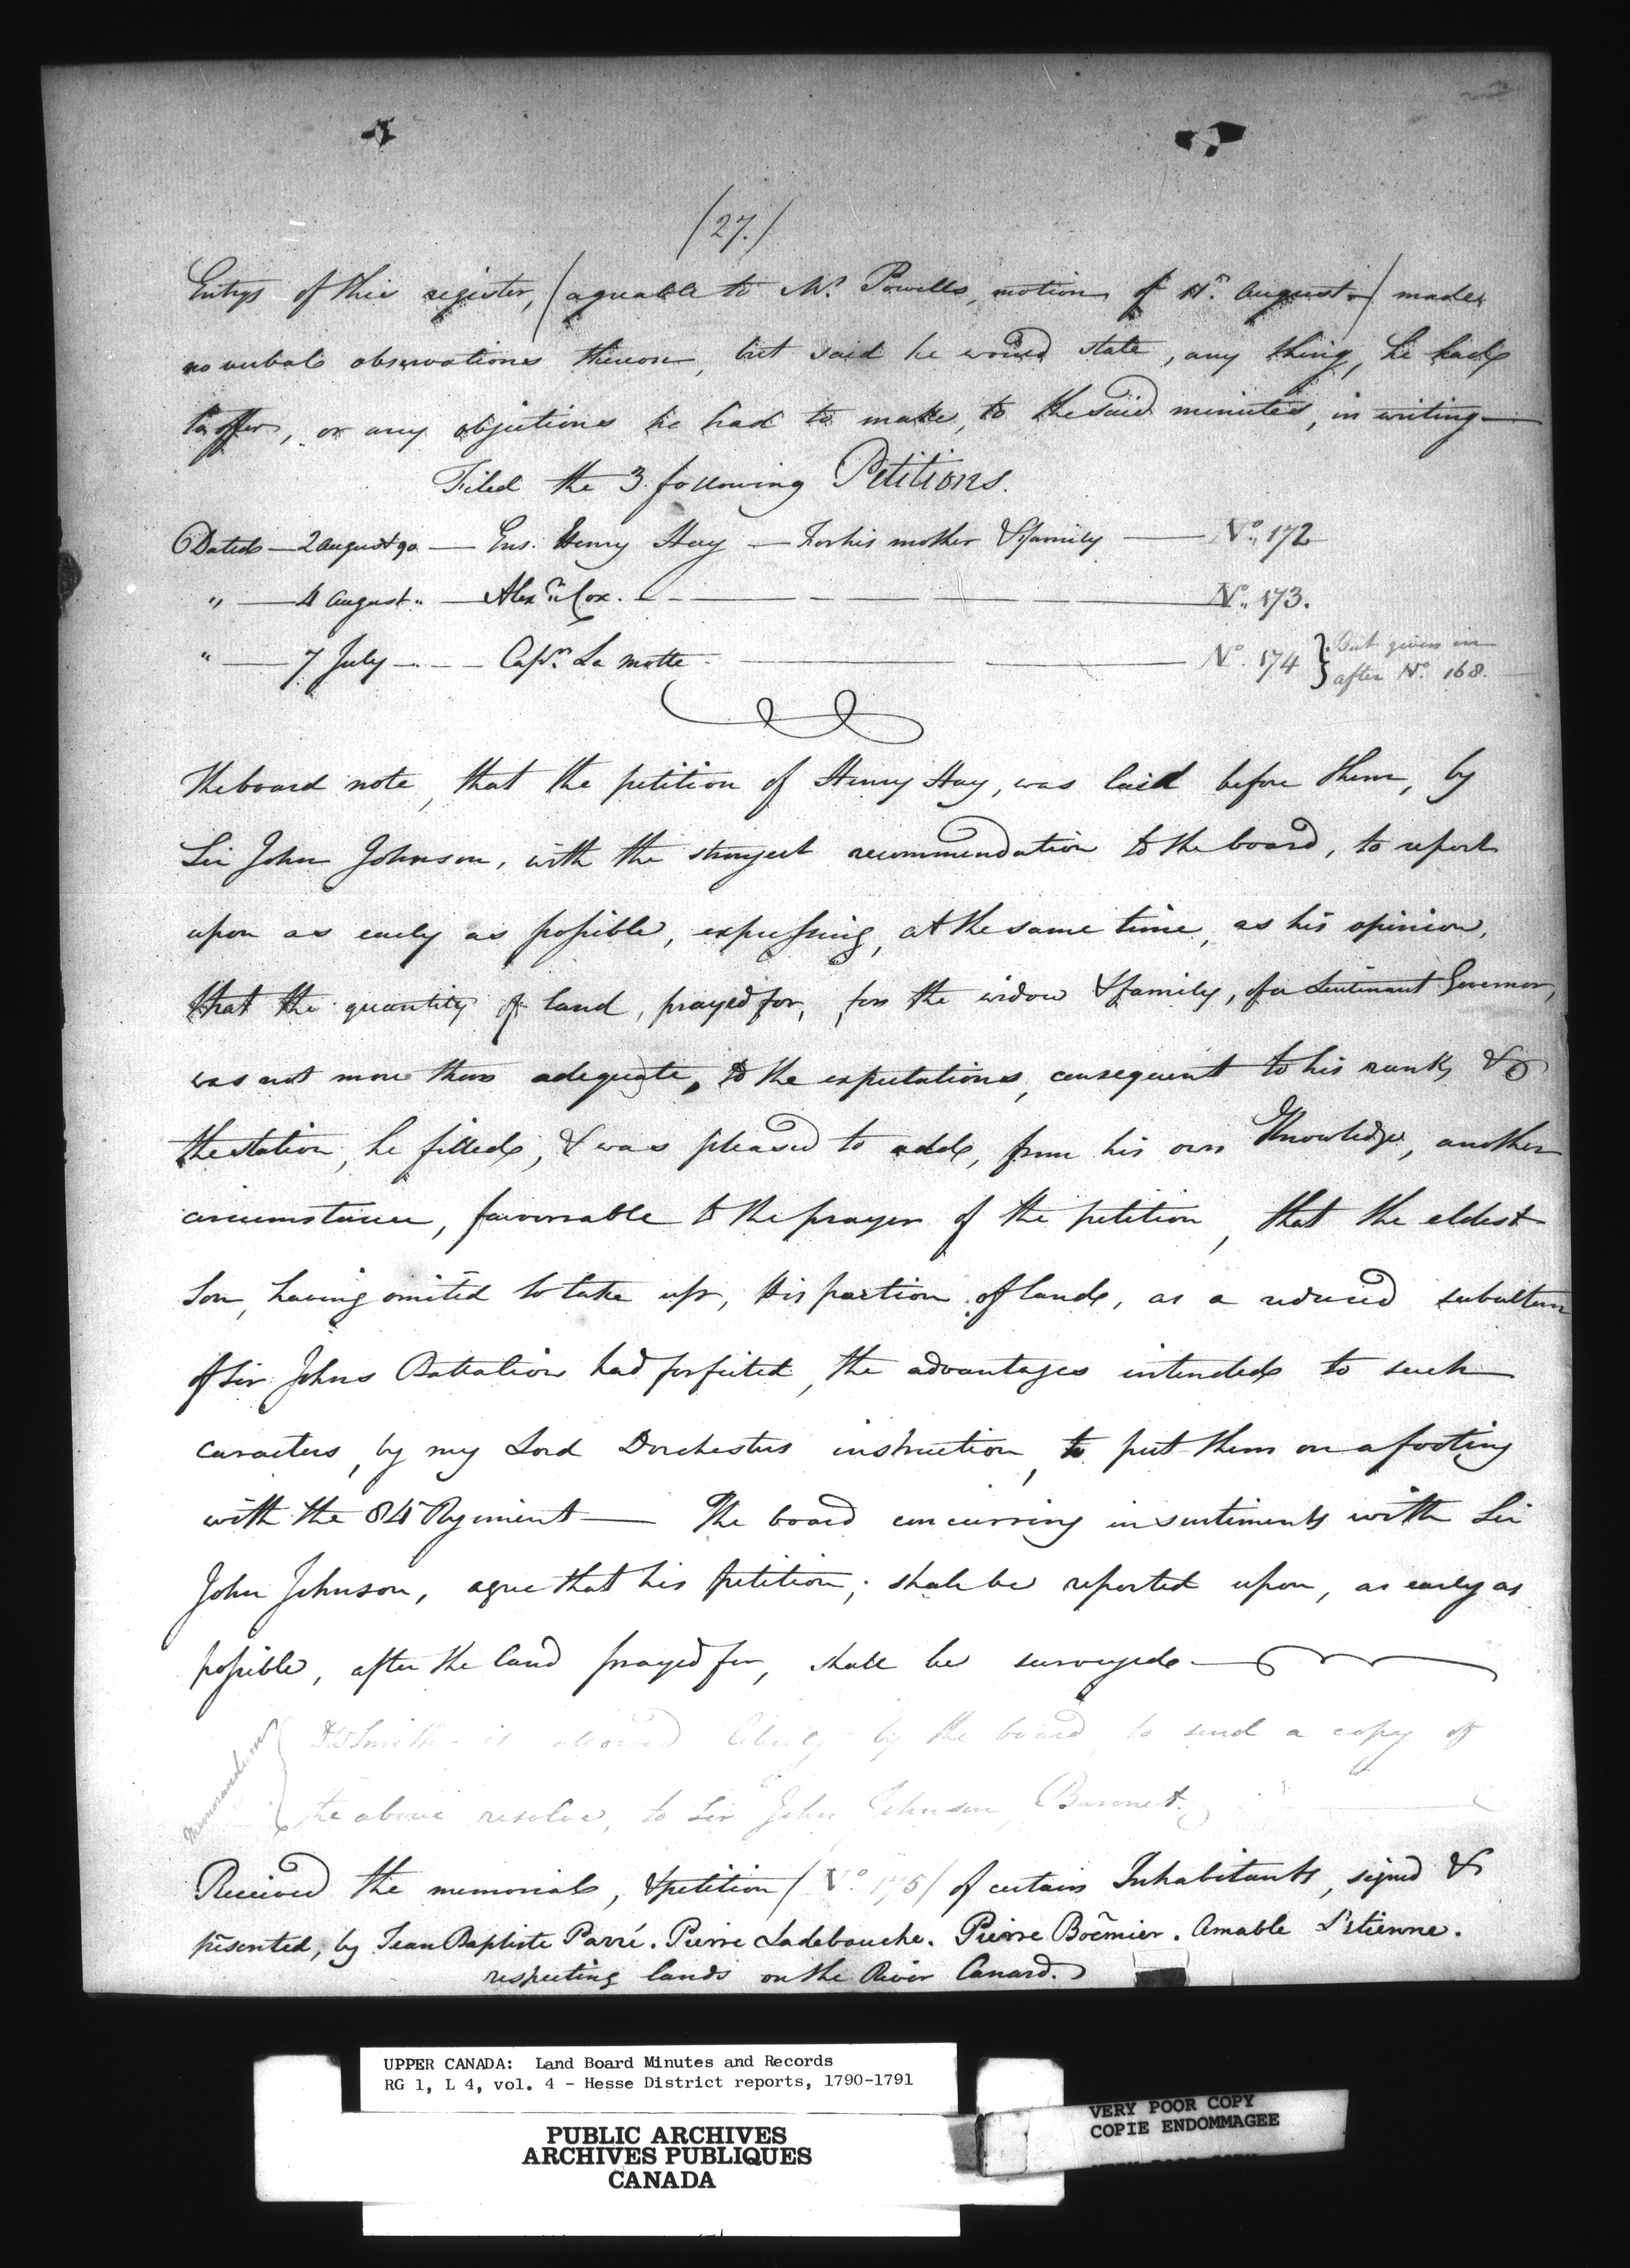 (27.)
Entrys of this register, (agreable to Mr. Powells, motion of August) made
no verbal observations thereon, but said he would state, any thing, he had
to offer, or any objections he had to make, to the said minutes, in writing —
Filed the 3 following Petitions.
Dated — 2 august 90 — Ens. Henry Hay — For his mother & family — No. 172
" — 4 august " — Alexr. Cox. — No. 173.
" — 7 July — " — Captn. La motte — No. 174 } But given in
after No. 168.
The board note, that the petition of Henry Hay, was laid before them, by
Sir John Johnson, with the strongest recommendation to the board, to report
upon as early as possible, expressing, at the same time, as his opinion,
that the quantity of land, prayed for, for the widow & family, of a Lieutenant Governor,
was not more than adequate, to the expectations, consequent to his rank, &
the station, he filled, & was pleased to add, from his own Knowledge, another
circumstance, favorable to the prayer of the petition, that the eldest
son, having omited to take up, his portion of land, as a reduced subaltern
of Sir Johns Battalion had forfeited, the advantages intended to such
caracters, by my Lord Dorchesters instruction, to put them on a footing
with the 84 Regiment — The board concurring in sentiments with Sir
John Johnson, agree that his petition, shall be reported upon, as early as
possible, after the land prayed for, shall be surveyed —
Memorandum { D W Smith is allowed liberty by the board to send a copy of
the above resolve, to Sir John Johnson, Baronet.
Received the memorial, & petition (No. 175) of certain Inhabitants, signed &
presented, by Jean Baptiste Parré. Pierre Ladebauche. Pierre Boemier. Amable L'etienne.
respecting lands on the River Canard.
UPPER CANADA: Land Board Minutes and Records
RG 1, L 4, vol. 4 - Hesse District reports, 1790-1791
PUBLIC ARCHIVES
ARCHIVES PUBLIQUES
CANADA
VERY POOR COPY
COPIE ENDOMMAGEE